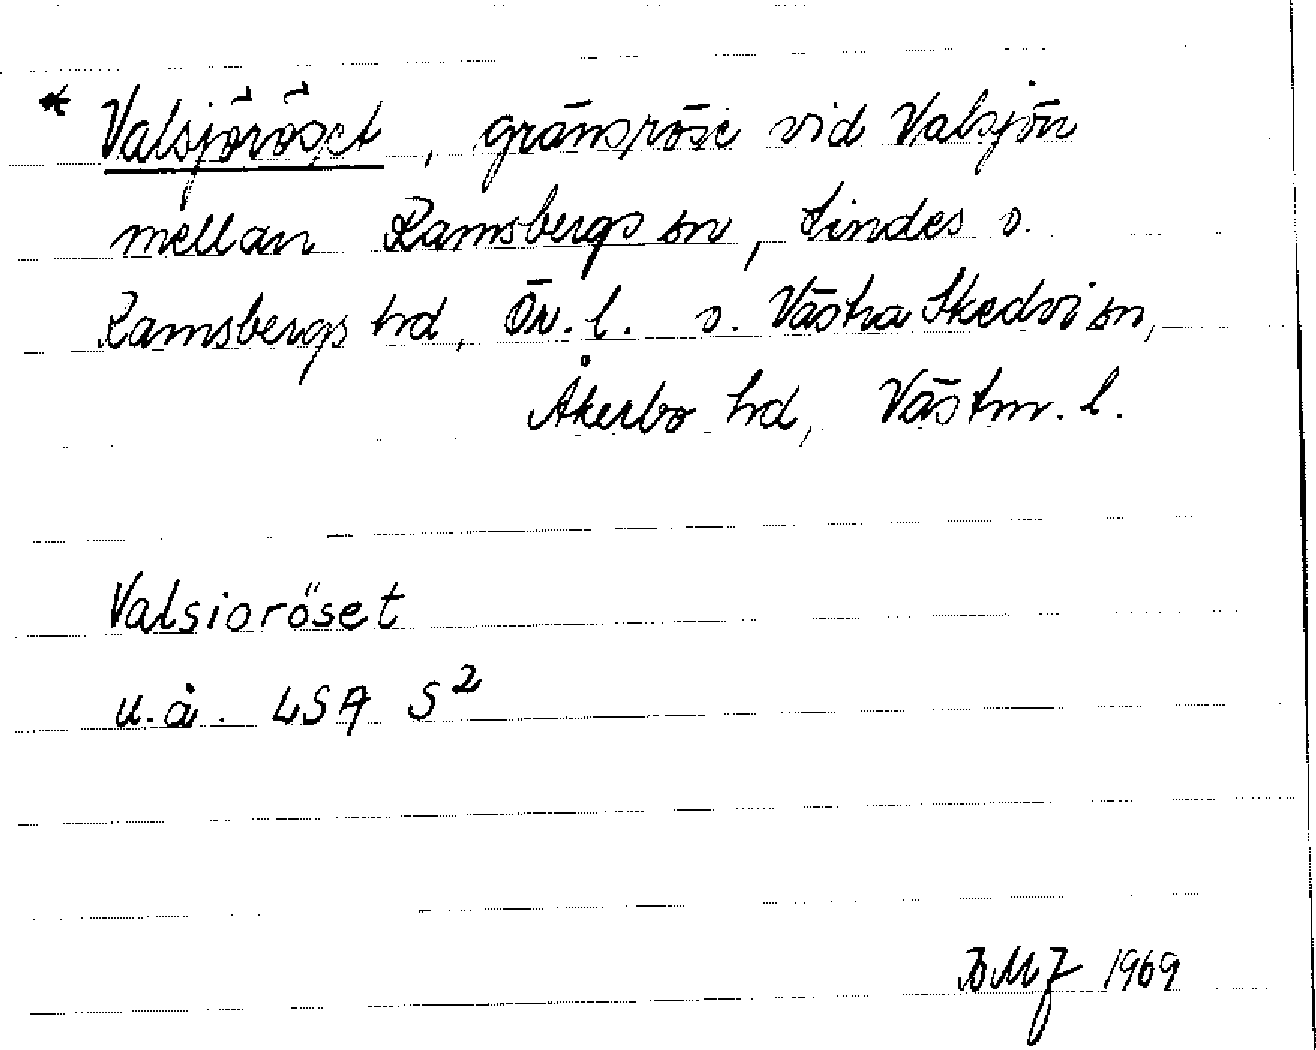 * Valsjöröset, gränsröse vid Valsjön
mellan Ramsbergs sn, Lindes o.
Ramsbergs hd, Ör. l. o. Västra Skedvi sn,
Åkerbo hd, Västm. l.
Valsioröset
u. å. LSA S²
BMJ 1969